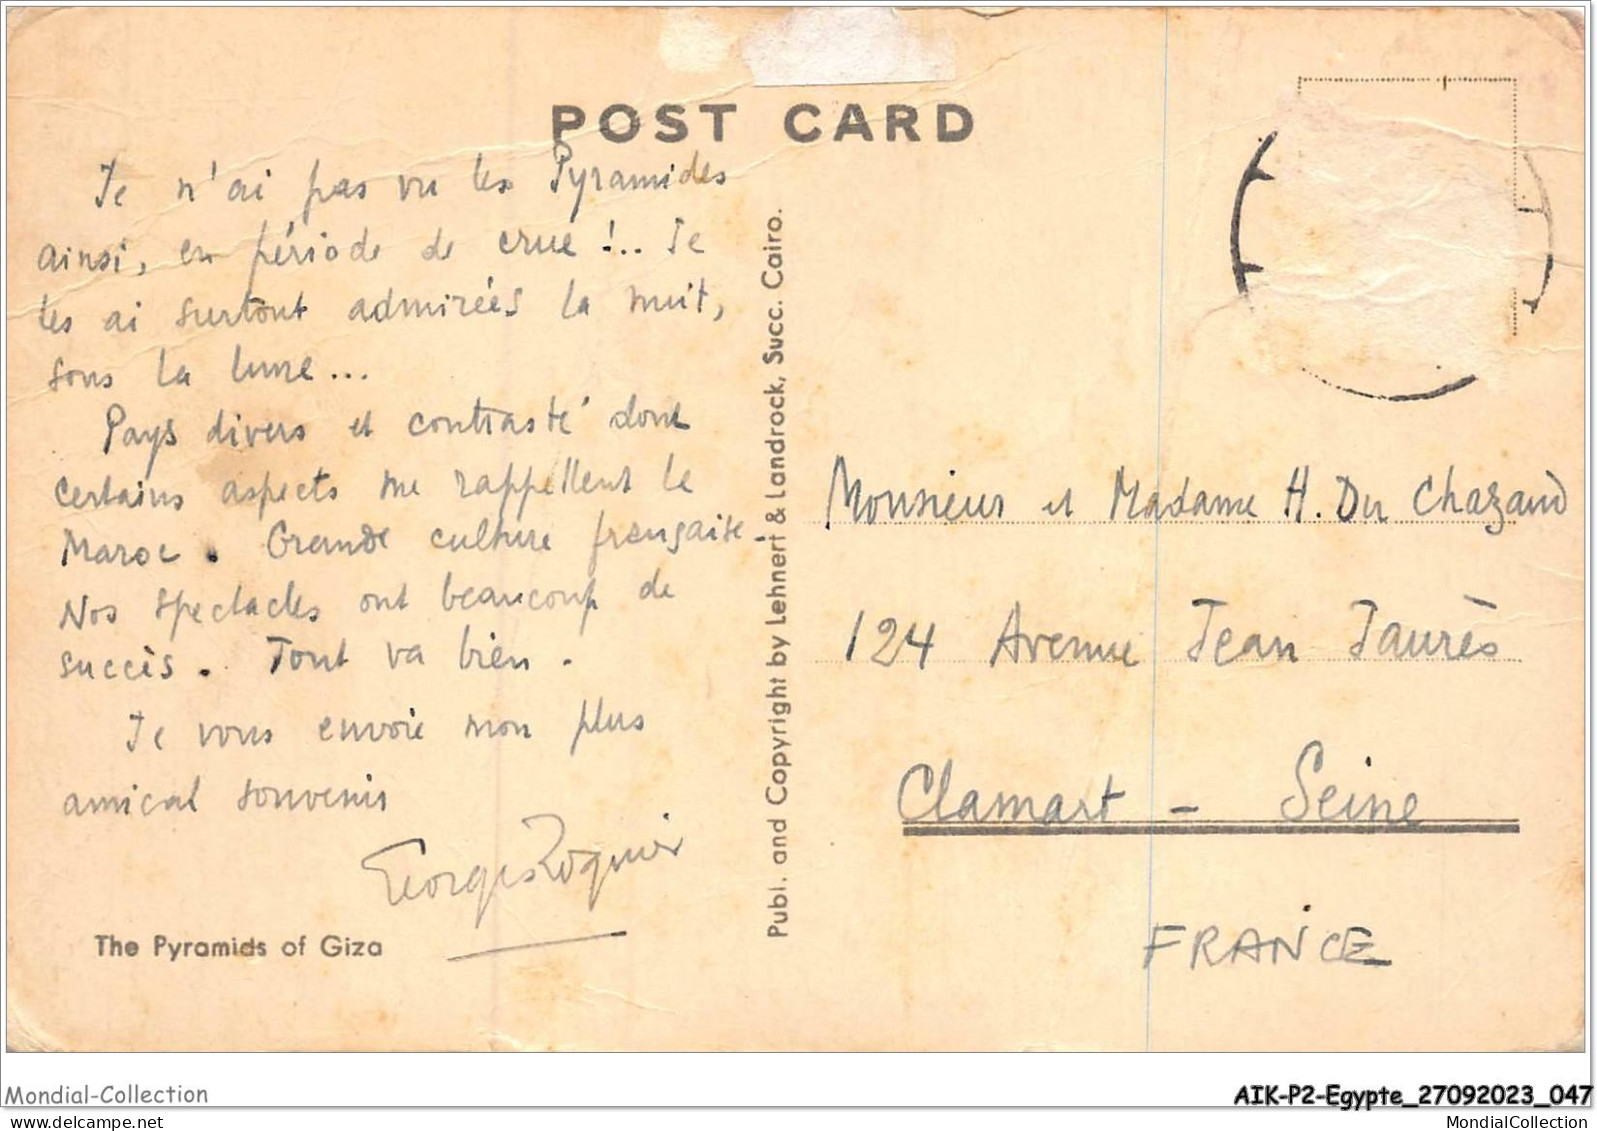 POST CARD
Je n'ai pas vu les Pyramides
ainsi, en période de crue !.. Je
les ai surtout admirées la nuit,
sous la lune...
Pays divers et contrasté dont
certains aspects me rappellent le
Maroc. Grande culture française.
Nos spectacles ont beaucoup de
succès. Tout va bien.
Je vous envoie mon plus
amical souvenir
Georges
The Pyramids of Giza
Publ. and Copyright by Lehnert & Landrock, Succ. Cairo.
Monsieur et Madame H. Du Chazaud
124 Avenue Jean Jaurès
Clamart - Seine
FRANCE
Mondial-Collection
AIK-P2-Egypte_27092023_047
www.delcampe.net
MondialCollection